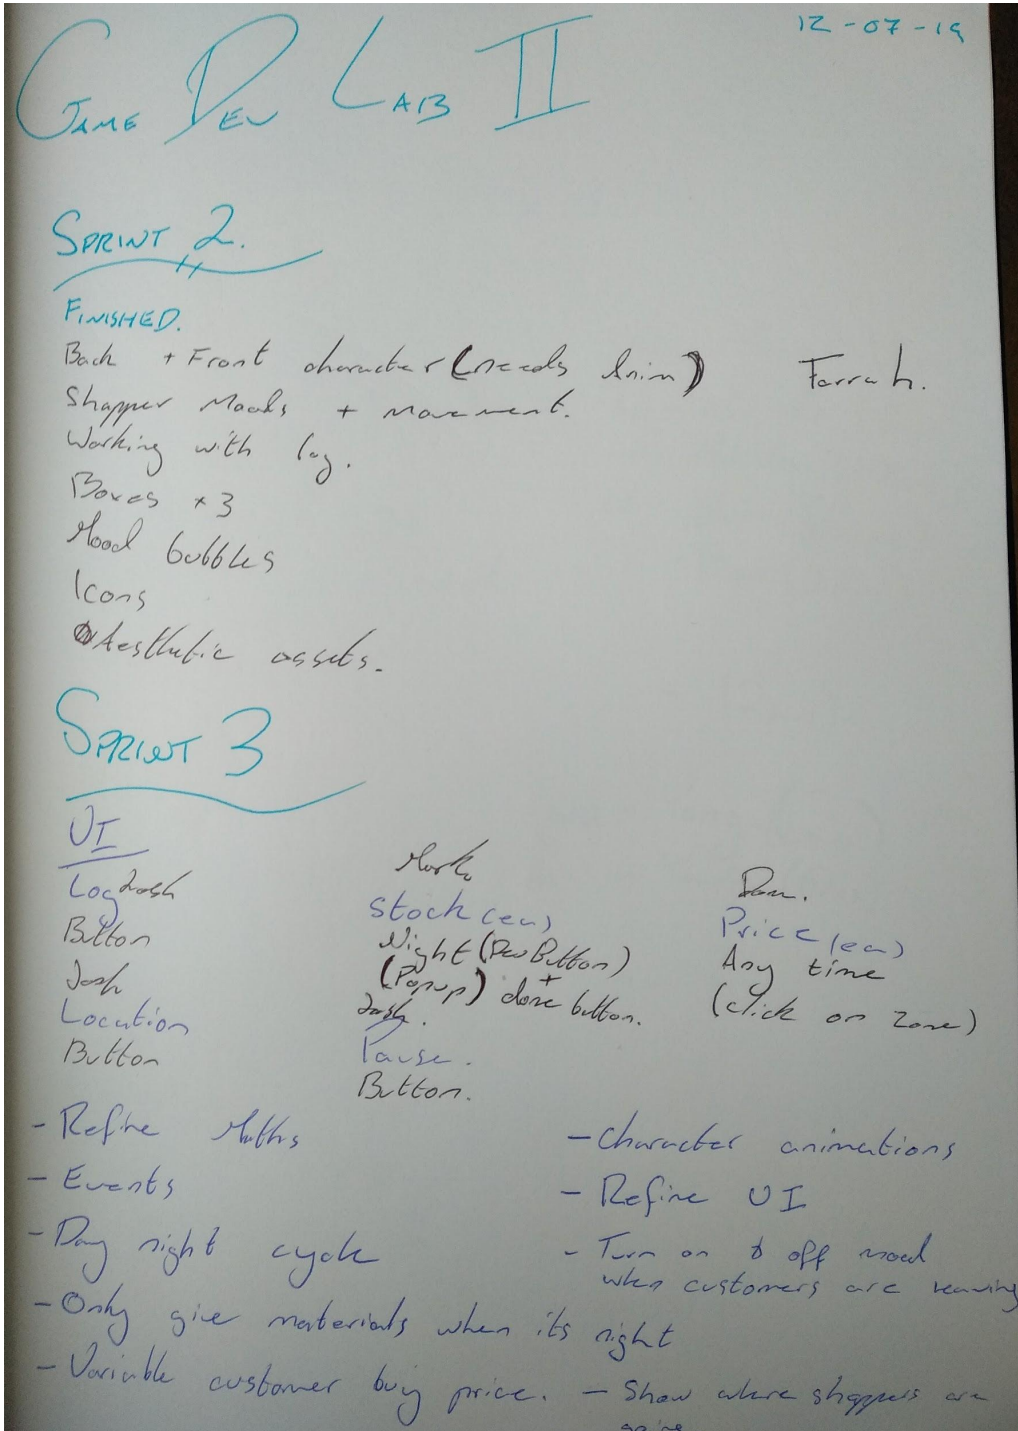 12-07-19
GAME DEV LAB II
SPRINT 2.
FINISHED.
Back + Front character (needs Anim) Farrah.
Shopper Moods + movement.
Working with log.
Boxes x3
Mood bubbles
Icons
Aesthetic assets.
SPRINT 3
UI
Log Josh
Button
Josh
Location
Button
Marko
Stock (en)
Night (Dev Button)
(Popup) + done button.
Josh.
Pause.
Button.
Dom.
Price (en)
Any time
(click on zone)
- Refine Maths
- Events
- Day night cycle
- Only give materials when its night
- Variable customer buy price.
- Character animations
- Refine UI
- Turn on & off mood
when customers are leaving
- Show where shoppers are
going